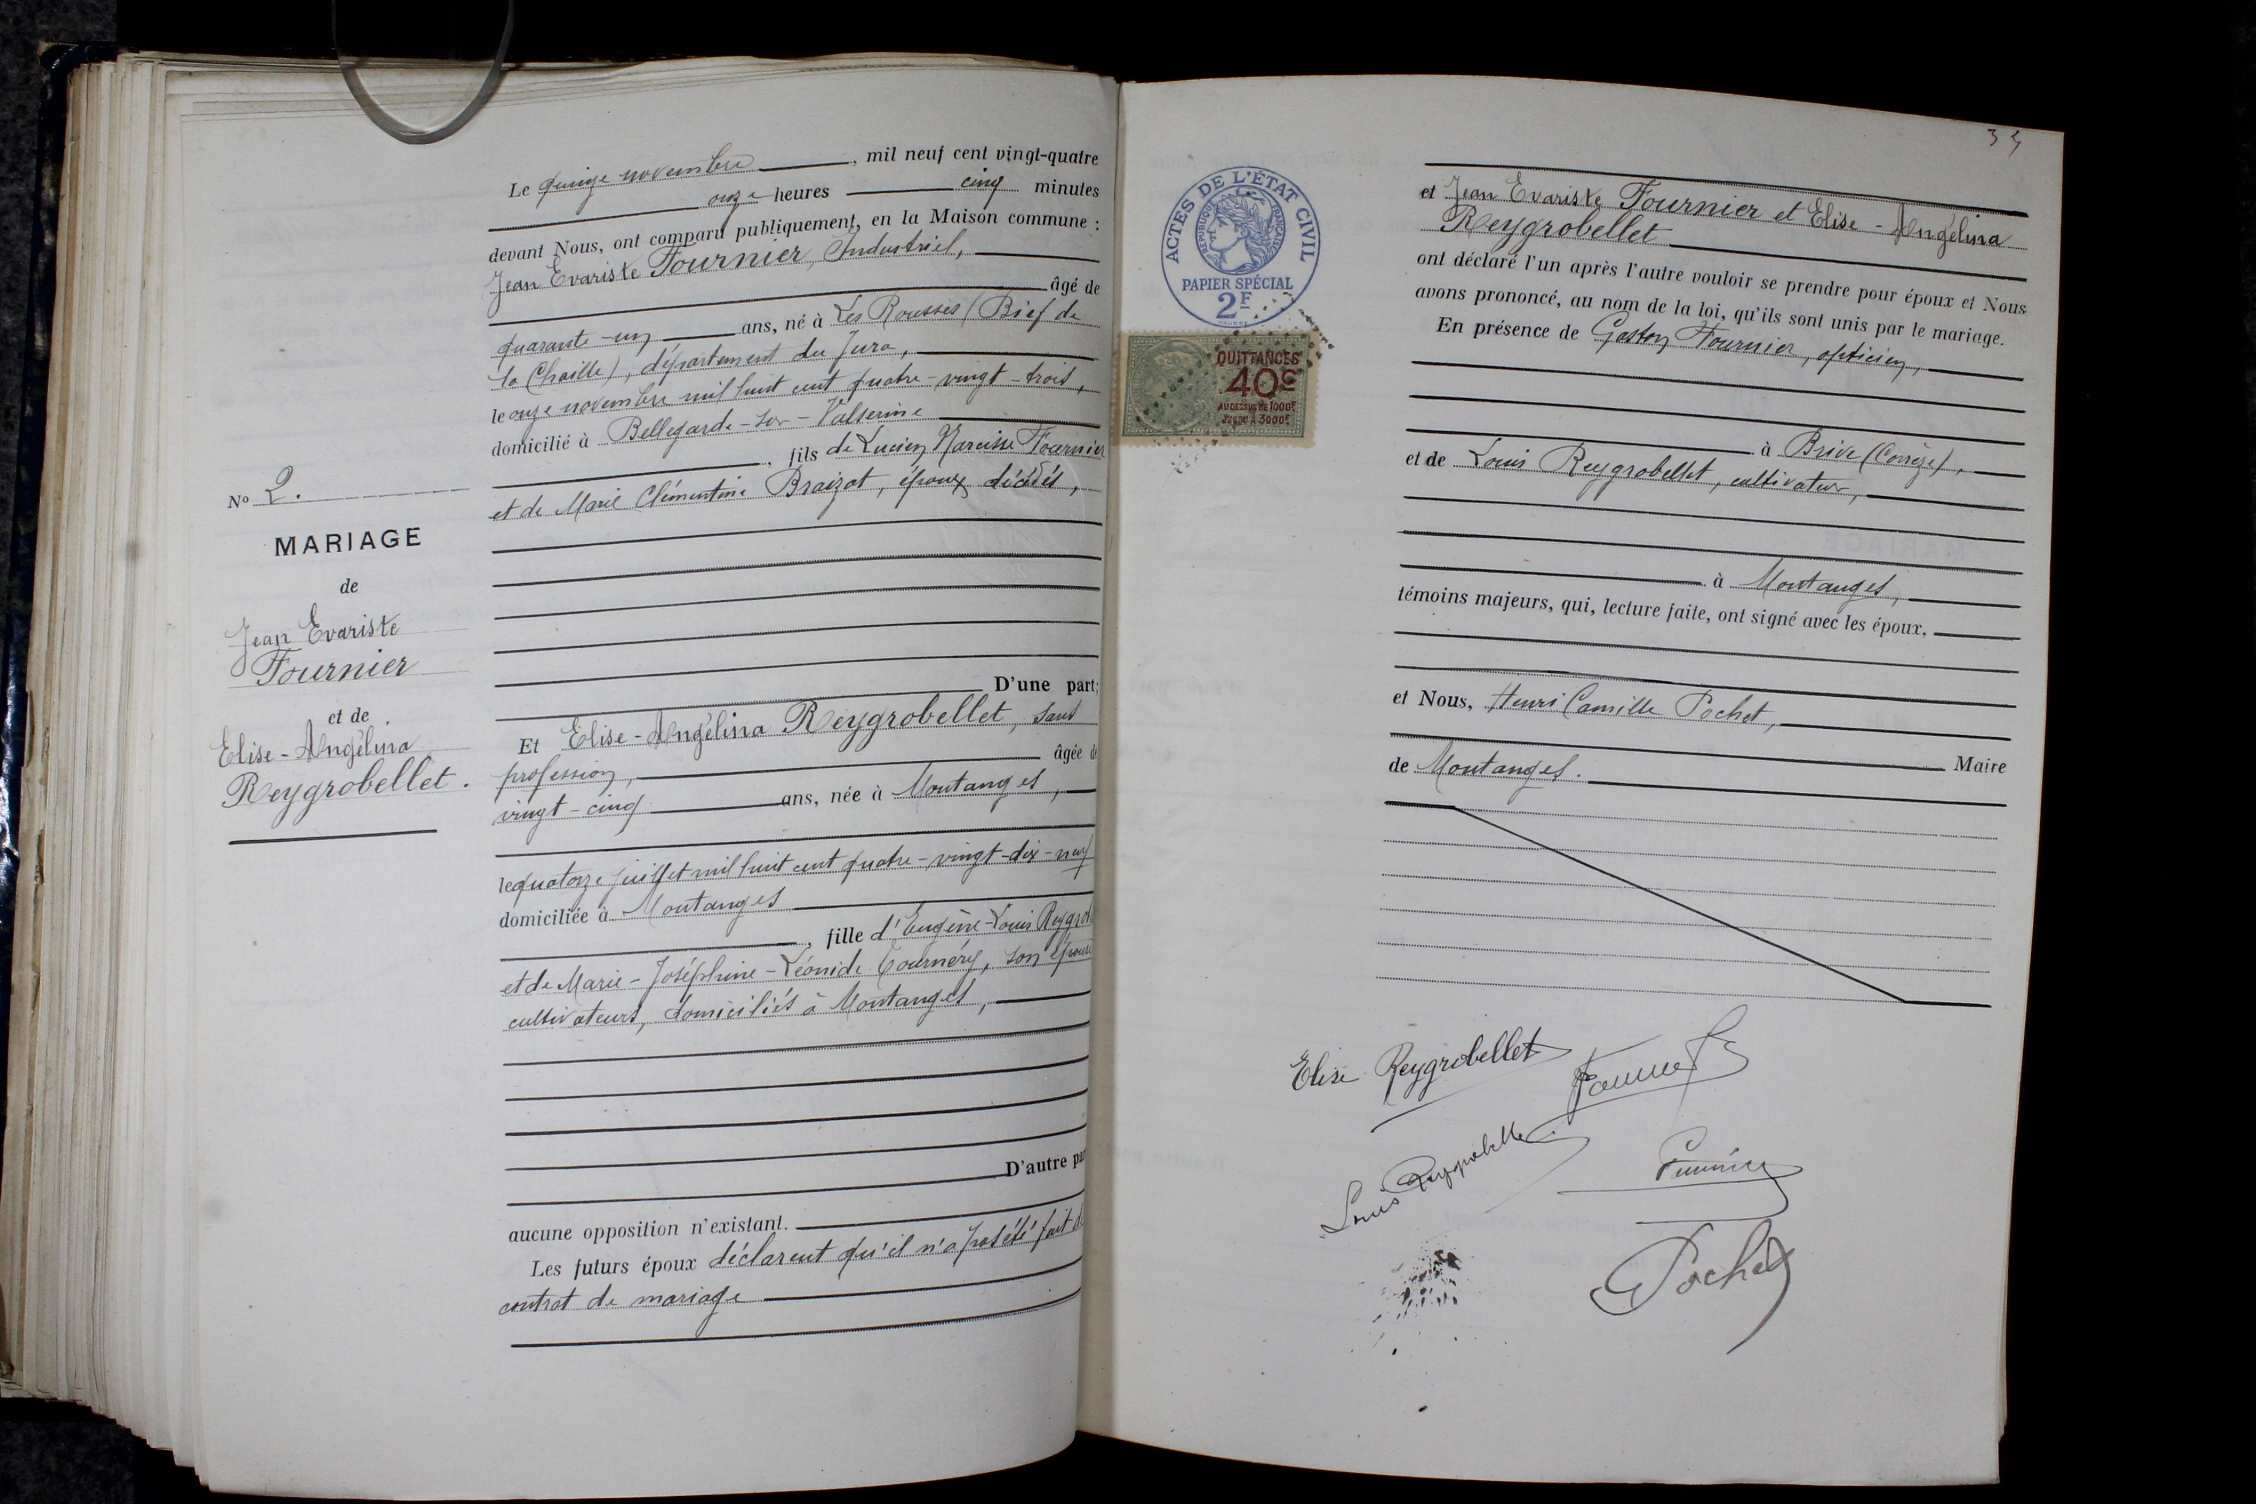 Le quinze novembre, mil neuf cent vingt-quatre
onze heures cinq minutes
devant Nous, ont comparu publiquement, en la Maison commune :
Jean Evariste Fournier, Industriel,
âgé de
quarante-un ans, né à Les Rousses (Bief de
la Chaille), département du Jura,
le onze novembre mil huit cent quatre-vingt-trois,
domicilié à Bellegarde-sur-Valserine
, fils de Lucien Narcisse Fournier
et de Marie Clémentine Braizat, époux décédés,
No 2.
MARIAGE
de
Jean Evariste
Fournier
et de
Elise-Angélina
Reygrobellet.
D'une part;
Et Elise-Angélina Reygrobellet, sans
profession, âgée de
vingt-cinq ans, née à Montanges,
le quatorze juillet mil huit cent quatre-vingt-dix-neuf
domiciliée à Montanges
, fille d'Eugène-Louis Reygrob
et de Marie-Joséphine-Léonide Tournéry, son épouse
cultivateurs, domiciliés à Montanges,
D'autre par
aucune opposition n'existant.
Les futurs époux déclarent qu'il n'a pas été fait de
contrat de mariage
34
ACTES DE L'ÉTAT CIVIL
RÉPUBLIQUE FRANÇAISE
PAPIER SPÉCIAL
2F
QUITTANCES
40c
AU DESSUS DE 1000F
JUSQU'À 3000F
et Jean Evariste Fournier et Elise-Angélina
Reygrobellet
ont déclaré l'un après l'autre vouloir se prendre pour époux et Nous
avons prononcé, au nom de la loi, qu'ils sont unis par le mariage.
En présence de Gaston Fournier, opticien,
à Brive (Corrèze),
et de Louis Reygrobellet, cultivateur,
à Montanges,
témoins majeurs, qui, lecture faite, ont signé avec les époux,
et Nous, Henri Camille Pochet,
Maire
de Montanges.
Elise Reygrobellet
Fournier
Louis Reygrobellet
Fournier
Pochet